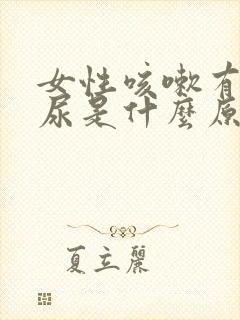 女性咳嗽有
尿是什麼原
夏立麗